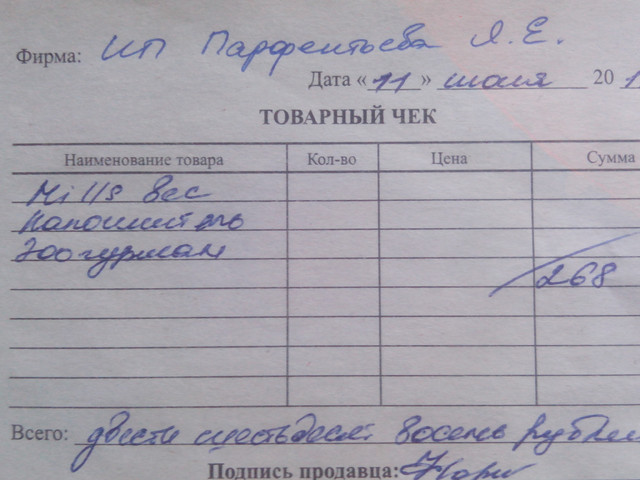 Фирма: ИП Парфентьева Я. Е.
Дата «11» июля 201
ТОВАРНЫЙ ЧЕК
Наименование товара Кол-во Цена Сумма
Hills вес
Наполнитель
Зоогурман
268
Всего: двести шестьдесят восемь рублей
Подпись продавца: